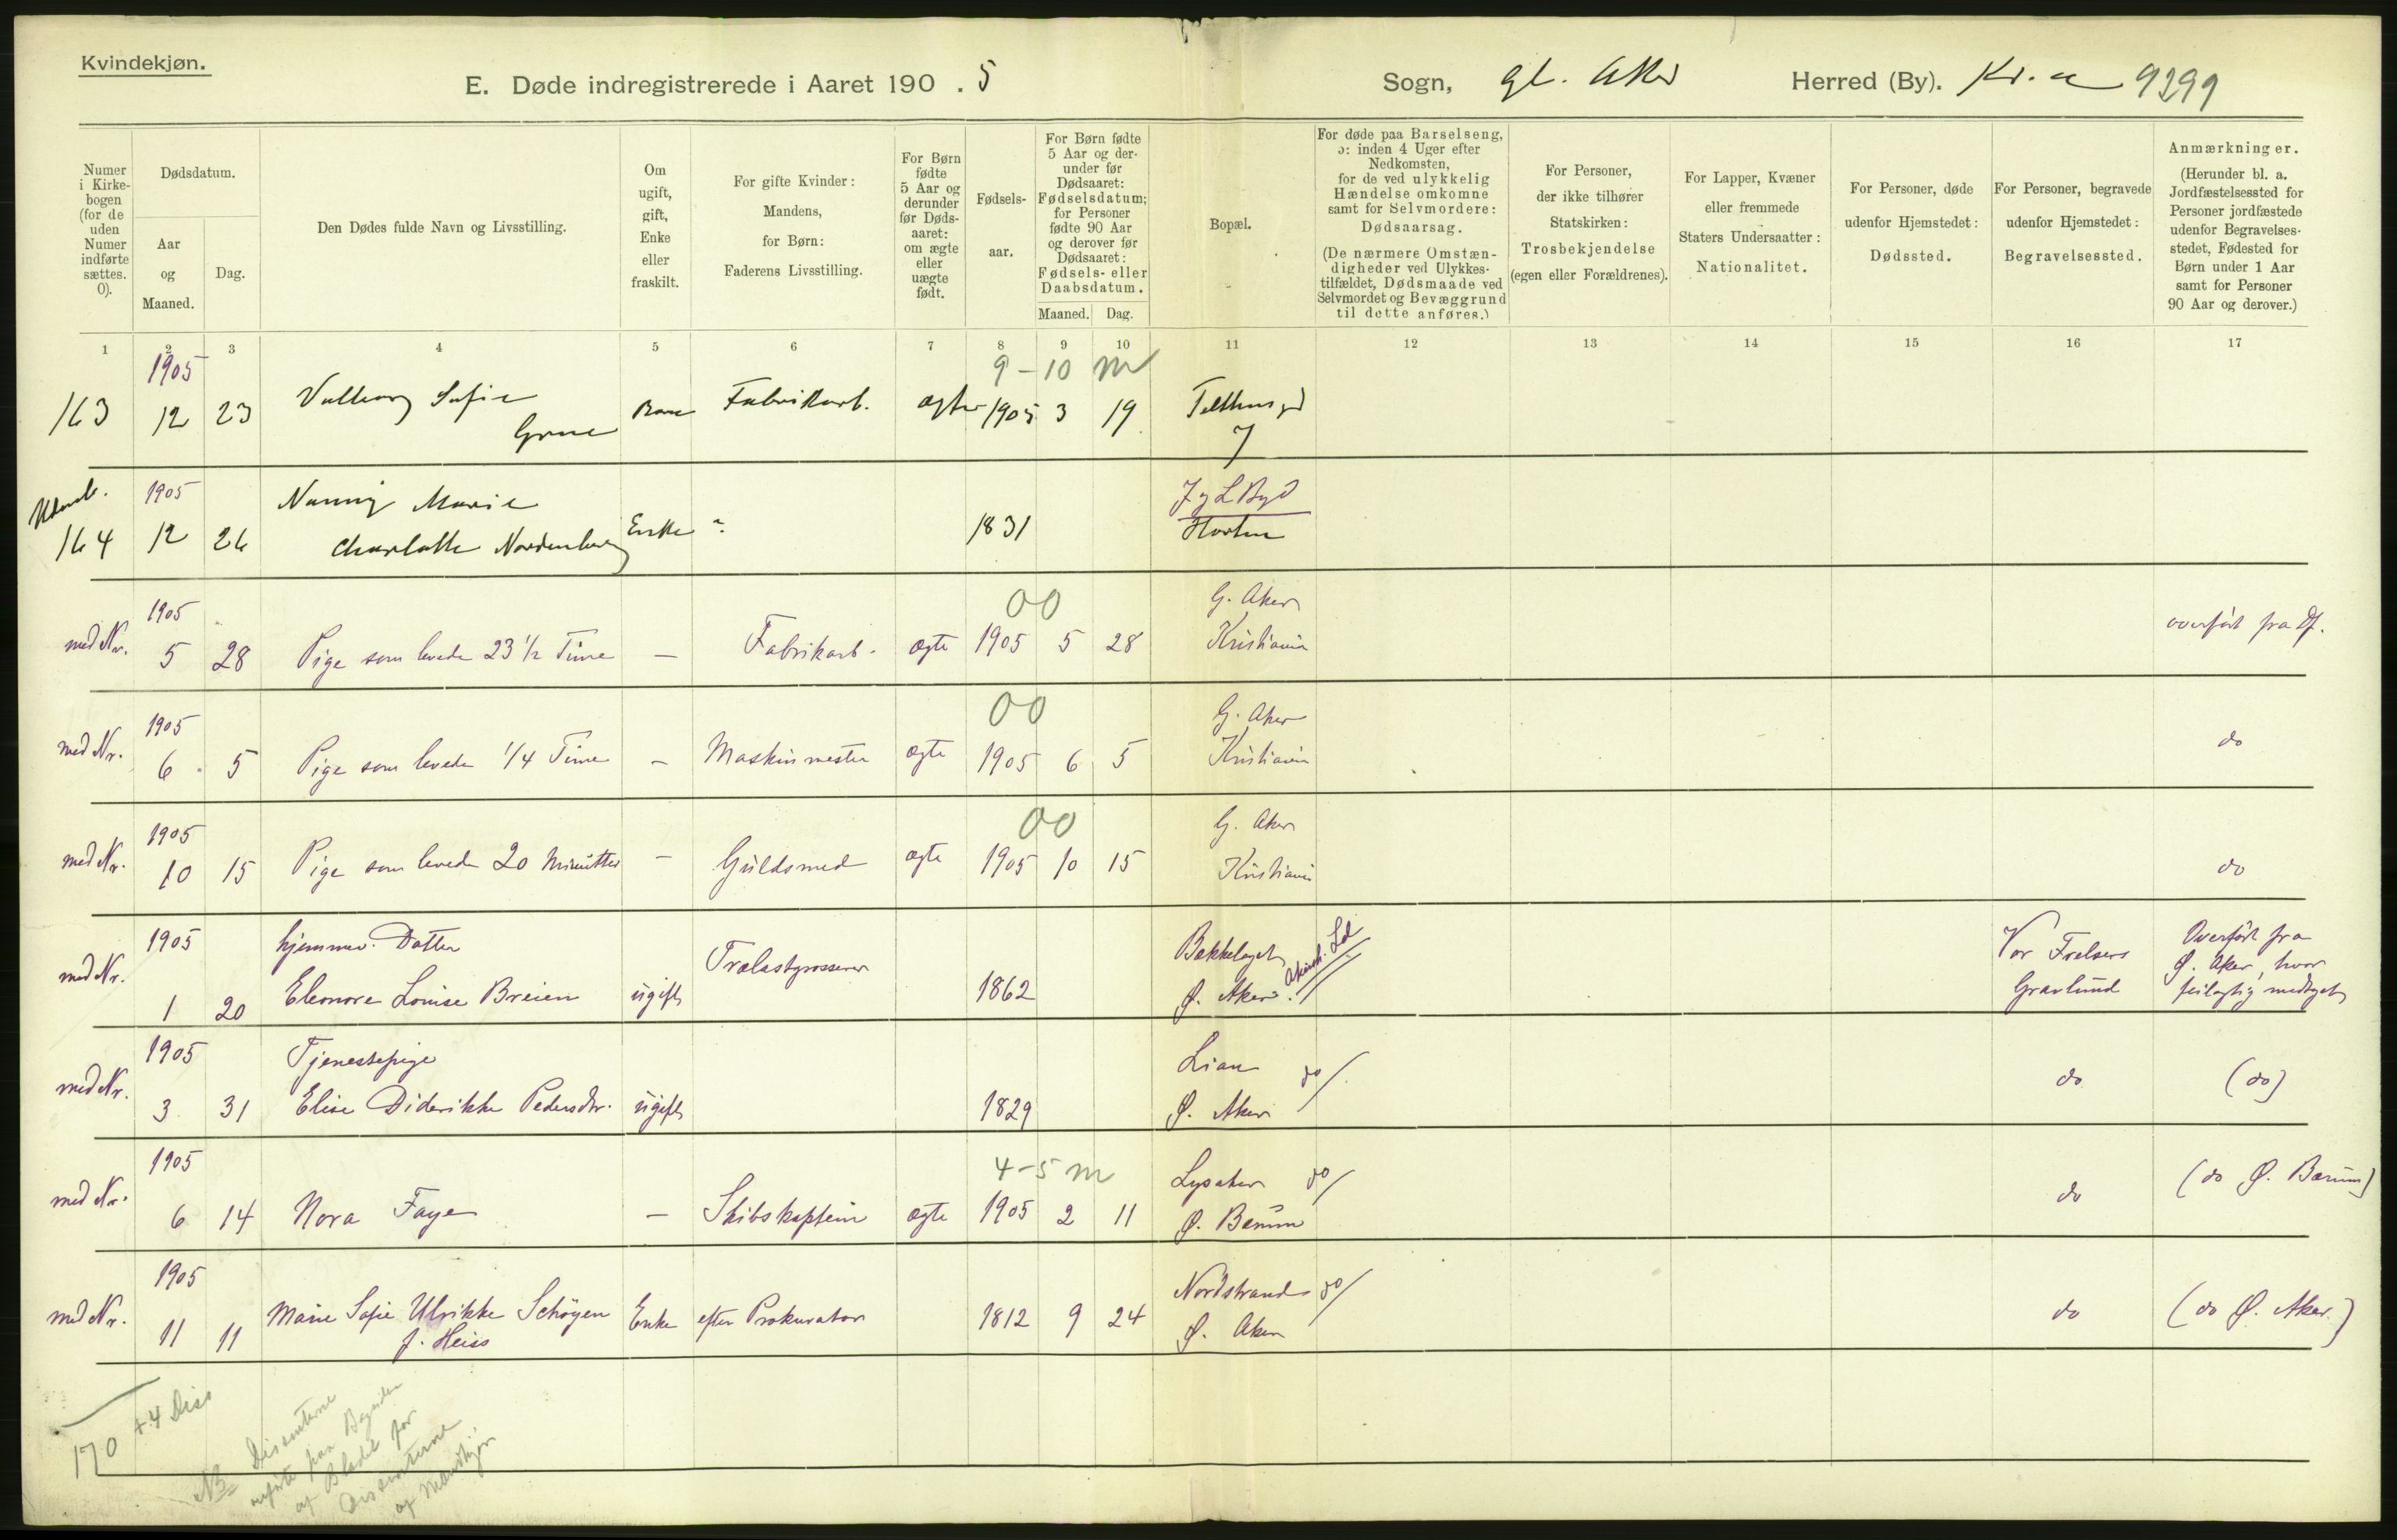 Kvindekjøn.
E. Døde indregistrerede i Aaret 190 . 5
Sogn, gl. Aker Herred (By). Kr.a 9399
Numer i Kirkebogen (for de uden Numer indførte sættes. 0).
Dødsdatum.
Aar og Maaned.
Dag.
Den Dødes fulde Navn og Livsstilling.
Om ugift, gift, Enke eller fraskilt.
For gifte Kvinder: Mandens, for Børn: Faderens Livsstilling.
For Børn fødte 5 Aar og derunder før Dødsaaret: om ægte eller uægte født.
Fødselsaar.
For Børn fødte 5 Aar og derunder før Dødsaaret: Fødselsdatum; for Personer fødte 90 Aar og derover før Dødsaaret: Fødsels- eller Daabsdatum.
Maaned. Dag.
Bopæl.
For døde paa Barselseng, ɔ: inden 4 Uger efter Nedkomsten, for de ved ulykkelig Hændelse omkomne samt for Selvmordere: Dødsaarsag.
(De nærmere Omstændigheder ved Ulykkestilfældet, Dødsmaade ved Selvmordet og Bevæggrund til dette anføres.)
For Personer, der ikke tilhører Statskirken: Trosbekjendelse (egen eller Forældrenes).
For Lapper, Kvæner eller fremmede Staters Undersaatter: Nationalitet.
For Personer, døde udenfor Hjemstedet: Dødssted.
For Personer, begravede udenfor Hjemstedet: Begravelsessted.
Anmærkninger.
(Herunder bl. a. Jordfæstelsessted for Personer jordfæstede udenfor Begravelsesstedet, Fødested for Børn under 1 Aar samt for Personer 90 Aar og derover.)
1 2 3 4 5 6 7 8 9 10 11 12 13 14 15 16 17
1905 9-10 m
163 12 23 Valborg Sofie Barn Fabrikarb. ægte 1905 3 19 Telthusgd
7
1905 Nanny Marie
164 12 26 Charlotte Nordenberg Enke 1831 Horten
1905 00 G. Aker
med Nr. 5 28 Pige som levede 23 1/2 Time — Fabrikarb. ægte 1905 5 28 Kristiania overført fra Df.
1905 00 G. Aker
med Nr. 6 5 Pige som levede 1/4 Time — Maskinmester ægte 1905 6 5 Kristiania do
1905 00 G. Aker
med Nr. 10 15 Pige som levede 20 Minutter — Guldsmed ægte 1905 10 15 Kristiania do
1905 hjemmev. Datter Trælastgrosserer Bækkelaget Vor Frelsers Overført fra
med Nr. 1 20 Eleonore Louise Breien ugift 1862 Ø. Aker Gravlund Ø. Aker, hvor
feilagtig medtaget
1905 Tjenestepige Lian do
med Nr. 3 31 Elise Diderikke Pedersdtr. ugift 1829 Ø. Aker do (do)
1905 4-5 m Lysaker do
med Nr. 6 14 Nora Faye — Skibskaptein ægte 1905 2 11 Ø. Bærum do (do Ø. Bærum)
1905 Nordstrand do
med Nr. 11 11 Marie Sofie Ulrikke Schøyen Enke efter Prokurator 1812 9 24 Ø. Aker do (do Ø. Aker.)
f. Heiss
170 + 4 Diss
NB Dissenterne
anførte paa Bagsiden
af Bladet for
Dissenterne
af Mandkjøn